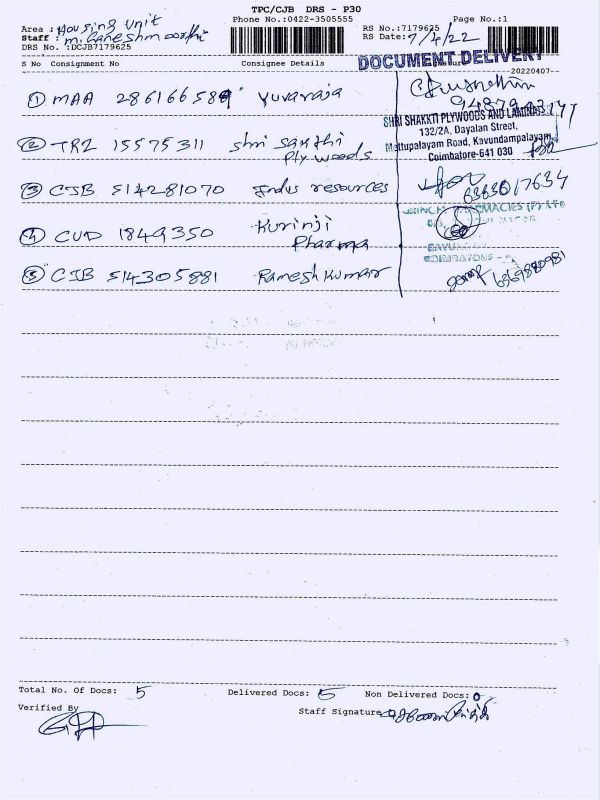 TPC/CJB DRS - P30
Phone No.:0422-3505555
Page No.:1
Area : Housing Unit
RS No.:7179625
Staff : M. Ganeshmoorthi
RS Date: 7/4/22
DRS No. :DCJB7179625
DOCUMENT DELIVERY
S No Consignment No Consignee Details
20220407-
① MAA 286166589 Yuvaraja
SHRI SHAKKTI PLYWOODS AND LAMINATES
132/2A, Dayalan Street,
Mettupalayam Road, Kavundampalayam,
Coimbatore-641 030
② TRZ 15575311 Shri Santhi
Plywoods
③ CJB 514281070 Indus resources
6363017634
④ CUD 1849350 Kurinji
Pharma
COIMBATORE -
⑤ CJB 514305881 Ramesh Kumar
6369880981
Total No. Of Docs: 5 Delivered Docs: 5 Non Delivered Docs: 0
Verified By
Staff Signature